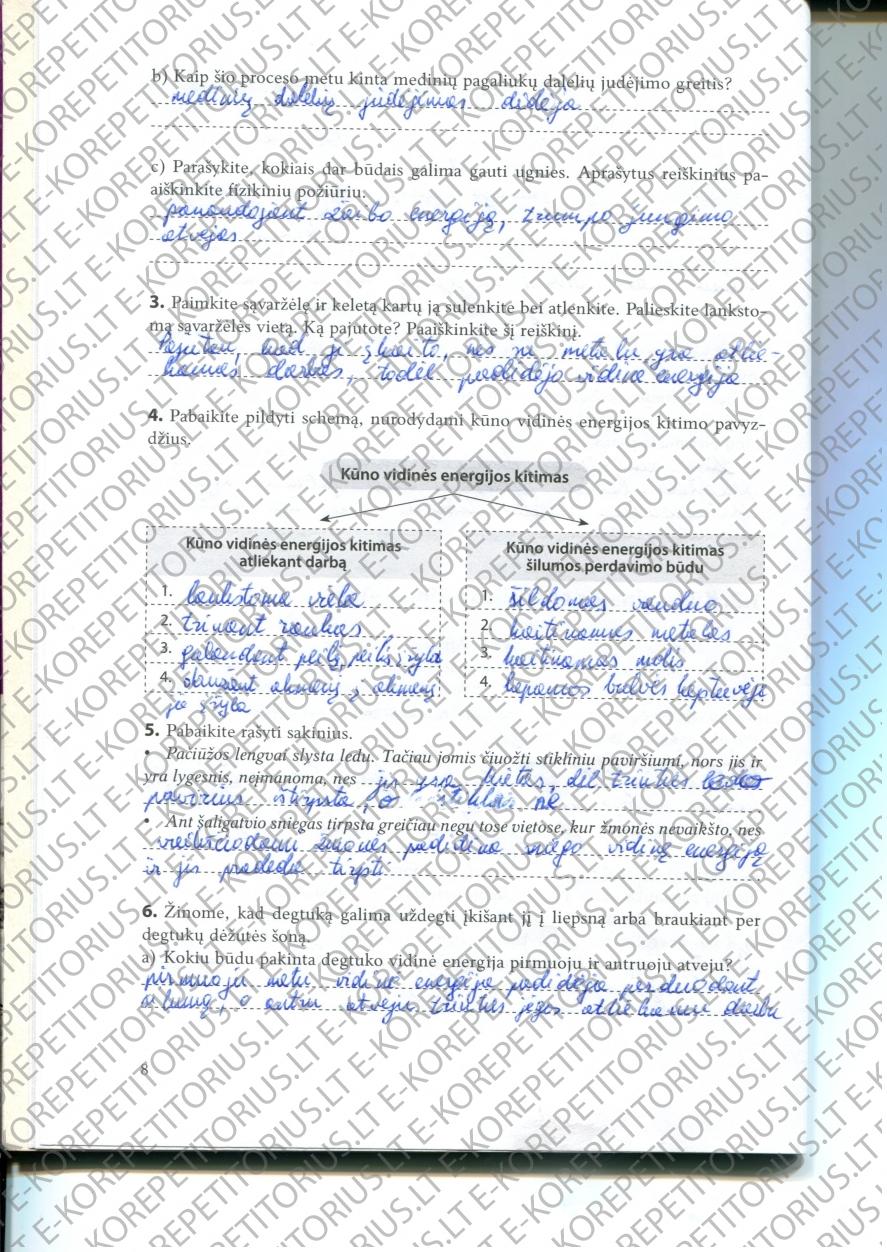 b) Kaip šio proceso metu kinta medinių pagaliukų dalelių judėjimo greitis?
medinių dalelių judėjimas didėja
c) Parašykite, kokiais dar būdais galima gauti ugnies. Aprašytus reiškinius pa-
aiškinkite fizikiniu požiūriu.
panaudojant darbo energiją, trumpo jungimo
atvejas
3. Paimkite sąvaržėlę ir keletą kartų ją sulenkite bei atlenkite. Palieskite lanksto-
mą sąvaržėlės vietą. Ką pajutote? Paaiškinkite šį reiškinį.
Pajutau, kad ji įkaito, nes su metalu yra atlie-
kamas darbas, todėl padidėjo vidinė energija
4. Pabaikite pildyti schemą, nurodydami kūno vidinės energijos kitimo pavyz-
džius.
Kūno vidinės energijos kitimas
Kūno vidinės energijos kitimas
atliekant darbą
1. lankstoma viela
2. trinant rankas
3. galandant peilį, peilis įšyla
4. daužant akmenį į akmenį
jie įšyla
Kūno vidinės energijos kitimas
šilumos perdavimo būdu
1. šildomas vanduo
2. kaitinamas metalas
3. kaitinamas molis
4. kepamos bulvės keptuvėje
5. Pabaikite rašyti sakinius.
• Pačiūžos lengvai slysta ledu. Tačiau jomis čiuožti stikliniu paviršiumi, nors jis ir
yra lygesnis, neįmanoma, nes jis yra kietas, dėl trinties ledo
pavirsius ištirpsta, o stiklas ne
• Ant šaligatvio sniegas tirpsta greičiau negu tose vietose, kur žmonės nevaikšto, nes
vaikščiodami žmonės padidina sniego vidinę energiją
ir jis pradeda tirpti
6. Žinome, kad degtuką galima uždegti įkišant jį į liepsną arba braukiant per
degtukų dėžutės šoną.
a) Kokiu būdu pakinta degtuko vidinė energija pirmuoju ir antruoju atveju?
pirmuoju metu vidinė energija padidėja perduodant
šilumą, o antru atveju trinties jėgos atliekamu darbu
8
E-KOREPETITORIUS.LT